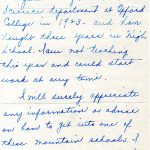 Science department at Offord
College in 1923. and have
taught three years in High
School. I am not teaching
this year and could start
work at any time.
I will surely appreciate
any information or advise
on how to get into one of
these mountain schools. I